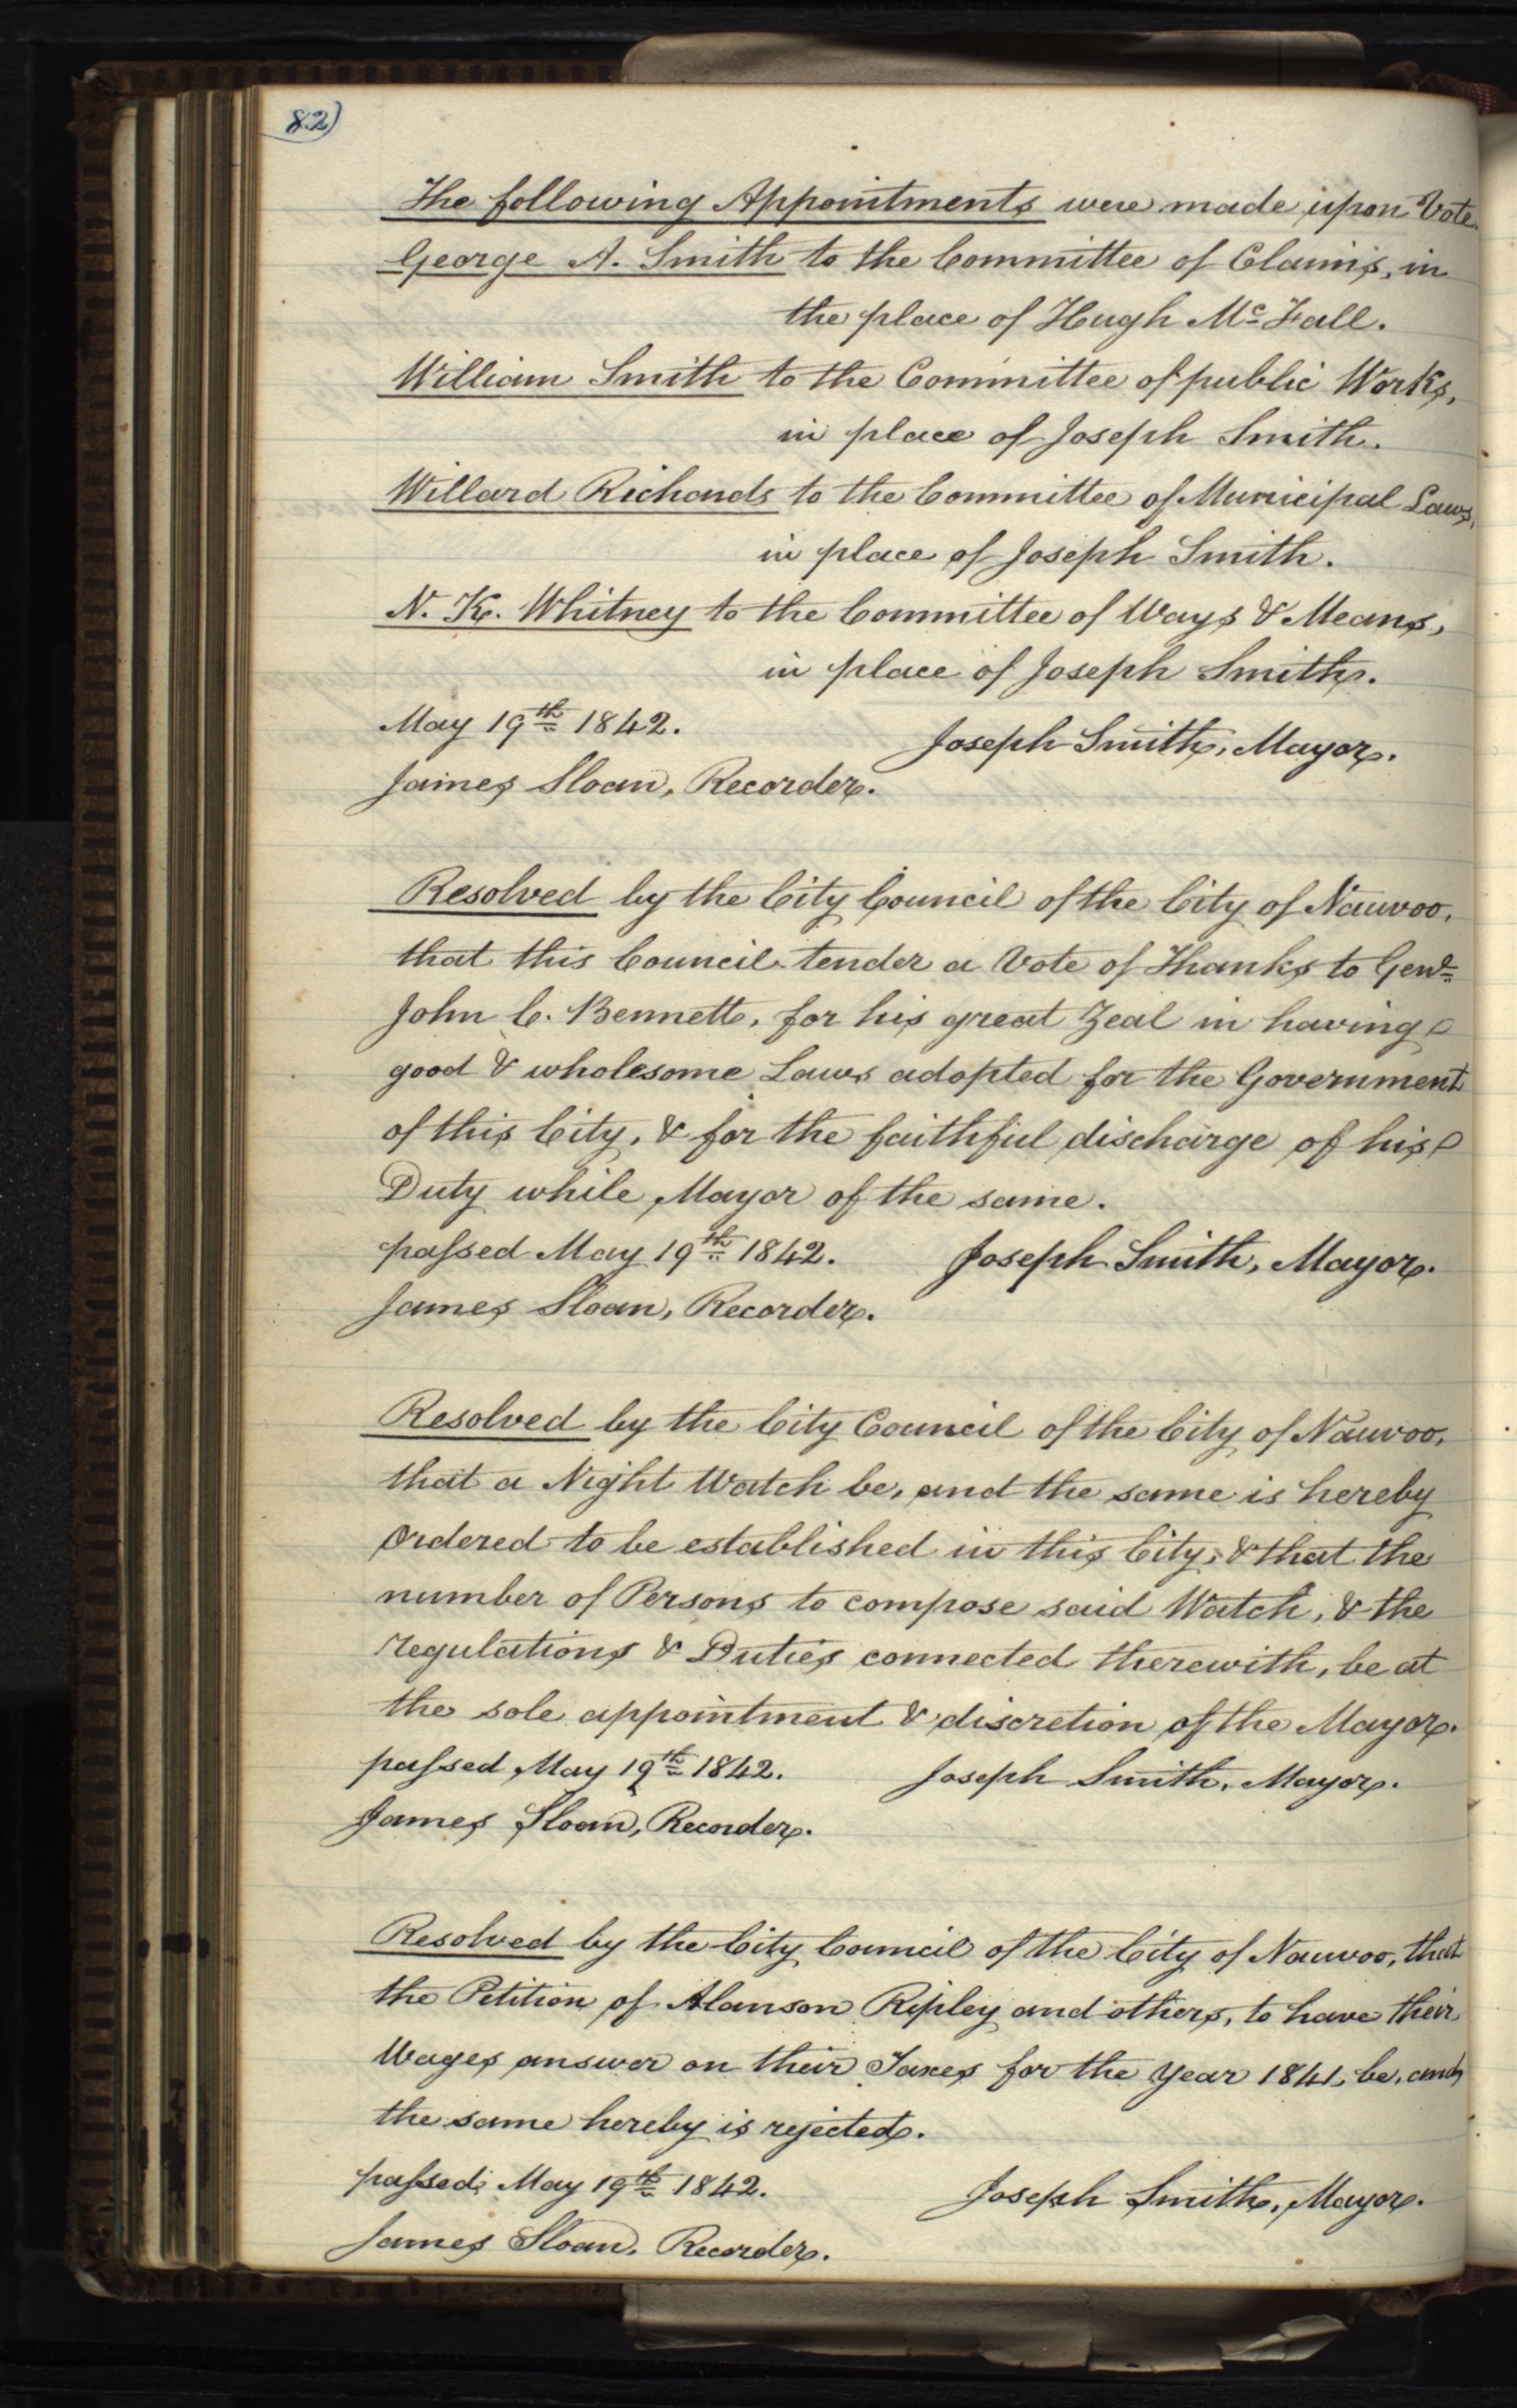 82)
The following Appointments were made upon Vote.
George A. Smith to the Committee of Claims, in
the place of Hugh Mc Fall.
William Smith to the Committee of public Works,
in place of Joseph Smith.
Willard Richards to the Committee of Municipal Laws,
in place of Joseph Smith.
N. K. Whitney to the Committee of Ways & Means,
in place of Joseph Smith.
May 19th 1842.
Joseph Smith, Mayor.
James Sloan, Recorder.
Resolved by the City Council of the City of Nauvoo,
that this Council tender a Vote of Thanks to Genl.
John C. Bennett, for his great Zeal in having
good & wholesome Laws adopted for the Government
of this City, & for the faithful discharge of his
Duty while Mayor of the same.
passed May 19th 1842. Joseph Smith, Mayor.
James Sloan, Recorder.
Resolved by the City Council of the City of Nauvoo,
that a Night Watch be, and the same is hereby
Ordered to be established in this City, & that the
number of Persons to compose said Watch, & the
regulations & Duties connected therewith, be at
the sole appointment & discretion of the Mayor.
passed May 19th 1842. Joseph Smith, Mayor.
James Sloan, Recorder.
Resolved by the City Council of the City of Nauvoo, that
the Petition of Alanson Ripley and others, to have their
Wages answer on their Taxes for the Year 1841, be, and
the same hereby is rejected.
passed, May 19th 1842. Joseph Smith, Mayor.
James Sloan, Recorder.